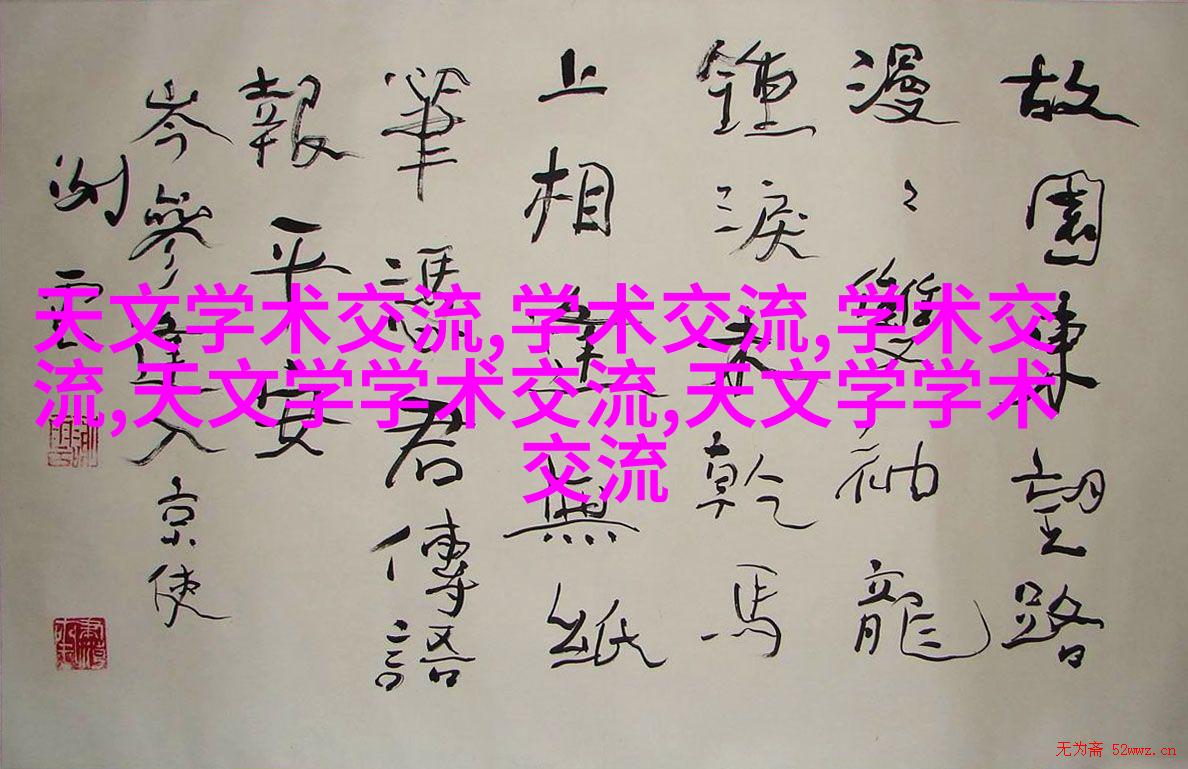 故園東望路
漫〻雙袖龍
鍾淚未乾馬
上相逢無紙
筆憑君傳語
報平安
岑參逢入京使
天文学术交流,学术交流,学术交
流,天文学学术交流,天文学学术
交流
无为斋 52wwz.cn